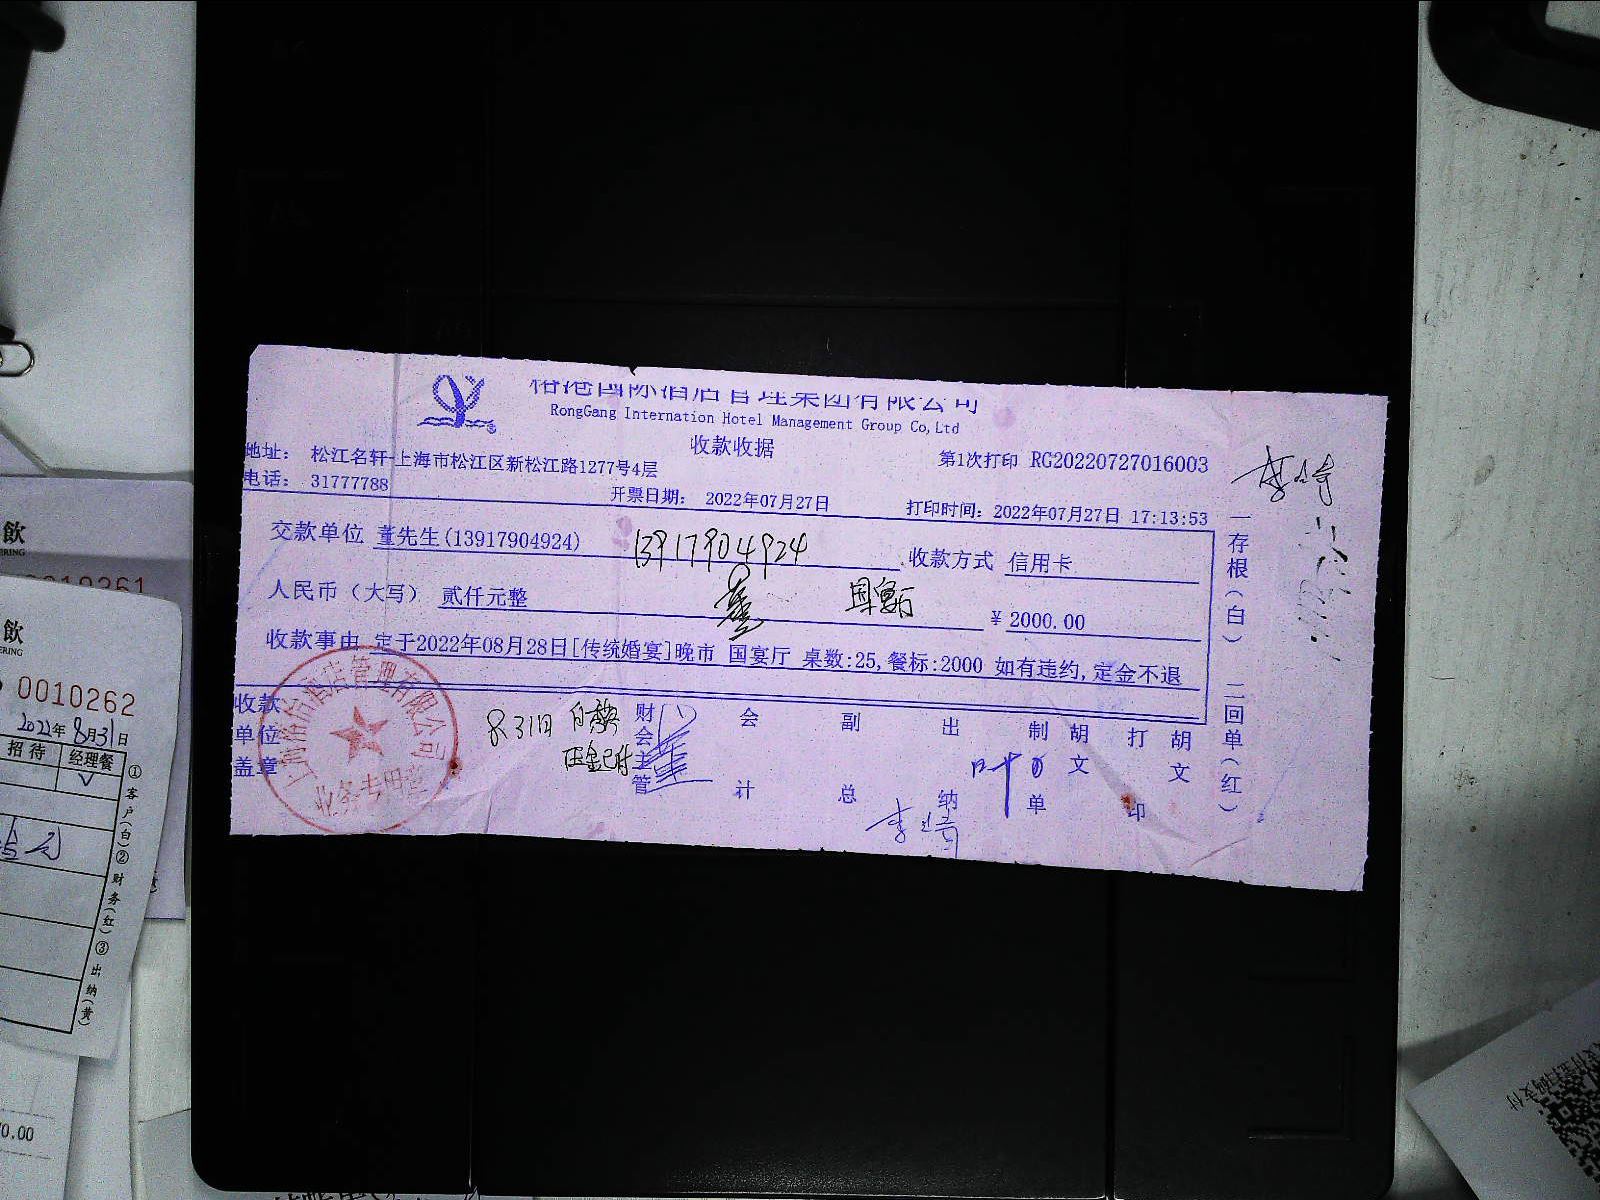 国际酒店管理集团有限公司
RongGang Internation Hotel Management Group Co,Ltd
收款收据
地址: 松江名轩-上海市松江区新松江路1277号4层
第1次打印 RG20220727016003
电话: 31777788
开票日期: 2022年07月27日
打印时间: 2022年07月27日 17:13:53
交款单位 董先生(13917904924) 13917904924 收款方式 信用卡
人民币(大写) 贰仟元整 ¥ 2000.00
收款事由 定于2022年08月28日[传统婚宴]晚市 国宴厅 桌数:25,餐标:2000 如有违约,定金不退
收款单位盖章
8.31日
财会主管
会计
副总
出纳
制单 胡文
打印 胡文
业务专用章
一存根(白) 二回单(红)
飲
ERING
0010261
飲
ERING
0010262
2022年8月31日
招待 经理餐
①客户(白)②财务(红)③出纳(黄)
0.00